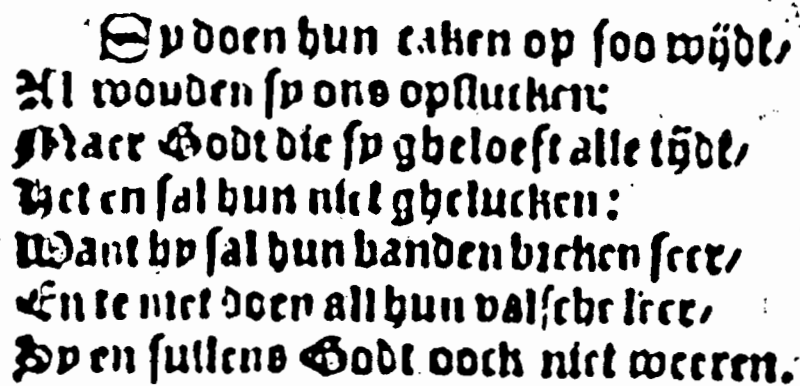 Sy doen hun caken op soo wijdt/
Al wouden sy ons opslucken:
Maer Godt die sy ghelooft alle tijdt/
Het en sal hun niet ghelucken:
Want hy sal hun banden breken seer/
En te niet doen all hun valsche leer/
Sy en sullens Godt oock niet weeren.